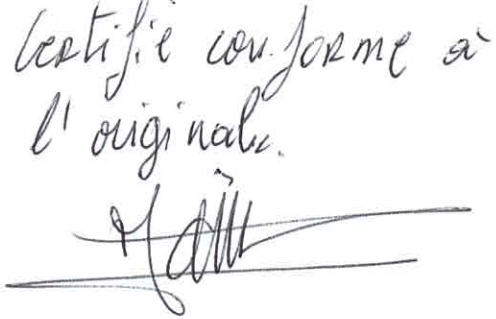 Certifié conforme à
l'original.